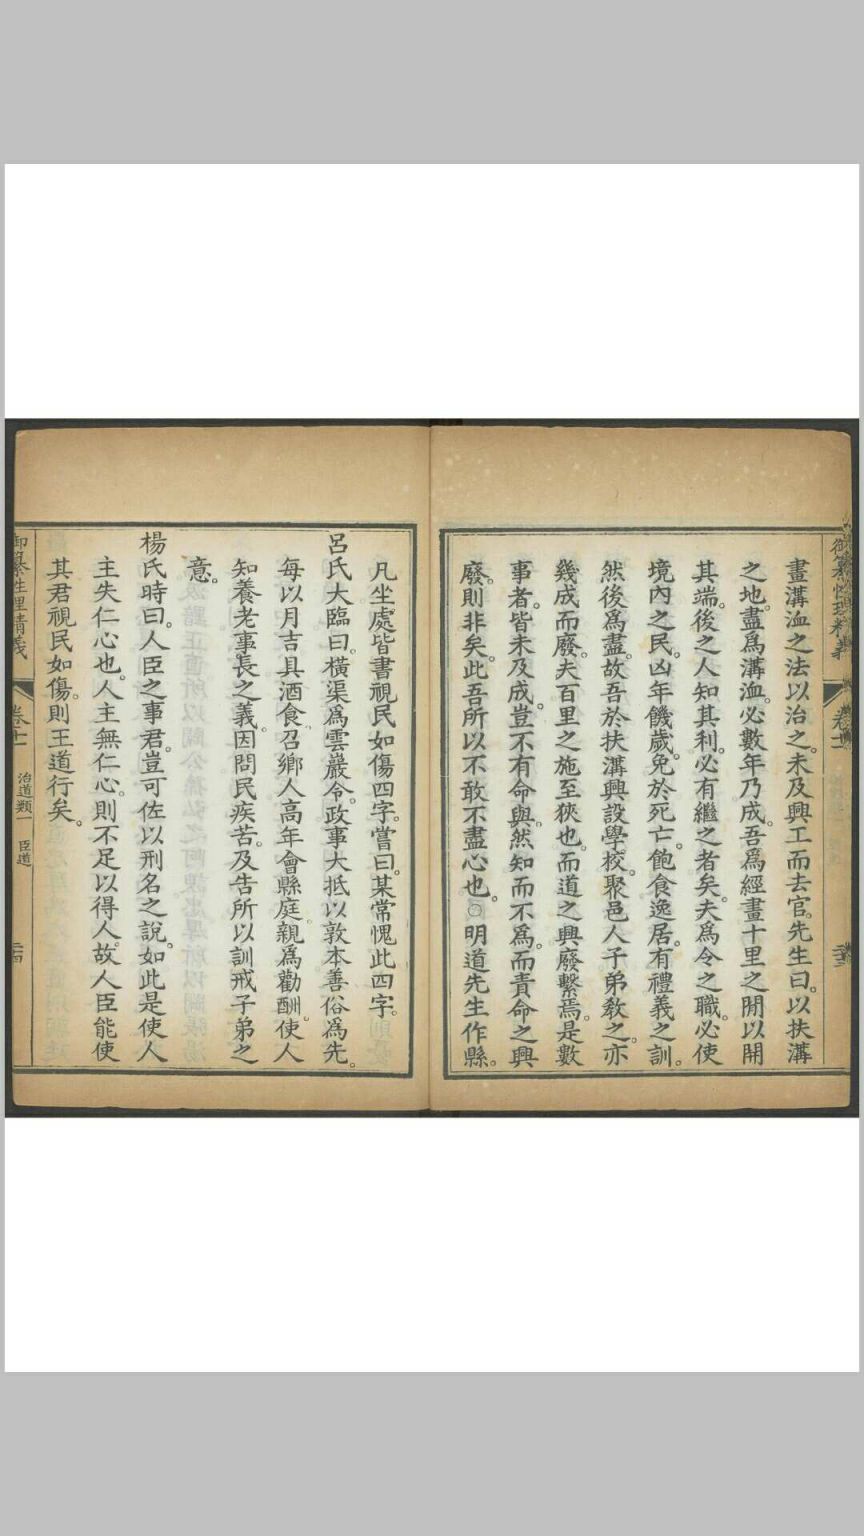 御纂性理精義
卷十一
畫溝洫之法以治之。未及興工而去官。先生曰。以扶溝
之地。盡爲溝洫。必數年乃成。吾爲經畫十里之間以開
其端。後之人知其利。必有繼之者矣。夫爲令之職。必使
境內之民。凶年饑歲。免於死亡。飽食逸居。有禮義之訓。
然後爲盡。故吾於扶溝興設學校。聚邑人子弟教之。亦
幾成而廢。夫百里之施至狹也。而道之興廢繫焉。是數
事者。皆未及成。豈不有命與。然知而不爲。而責命之興
廢。則非矣。此吾所以不敢不盡心也。○明道先生作縣。
凡坐處皆書視民如傷四字。嘗曰。某常愧此四字。
呂氏大臨曰。橫渠爲雲巖令。政事大抵以敦本善俗爲先。
每以月吉具酒食。召鄉人高年會縣庭。親爲勸酬。使人
知養老事長之義。因問民疾苦。及告所以訓戒子弟之
意。
楊氏時曰。人臣之事君。豈可佐以刑名之說。如此是使人
主失仁心也。人主無仁心。則不足以得人。故人臣能使
其君視民如傷。則王道行矣。
御纂性理精義
卷十一
治道類一 臣道
二十四